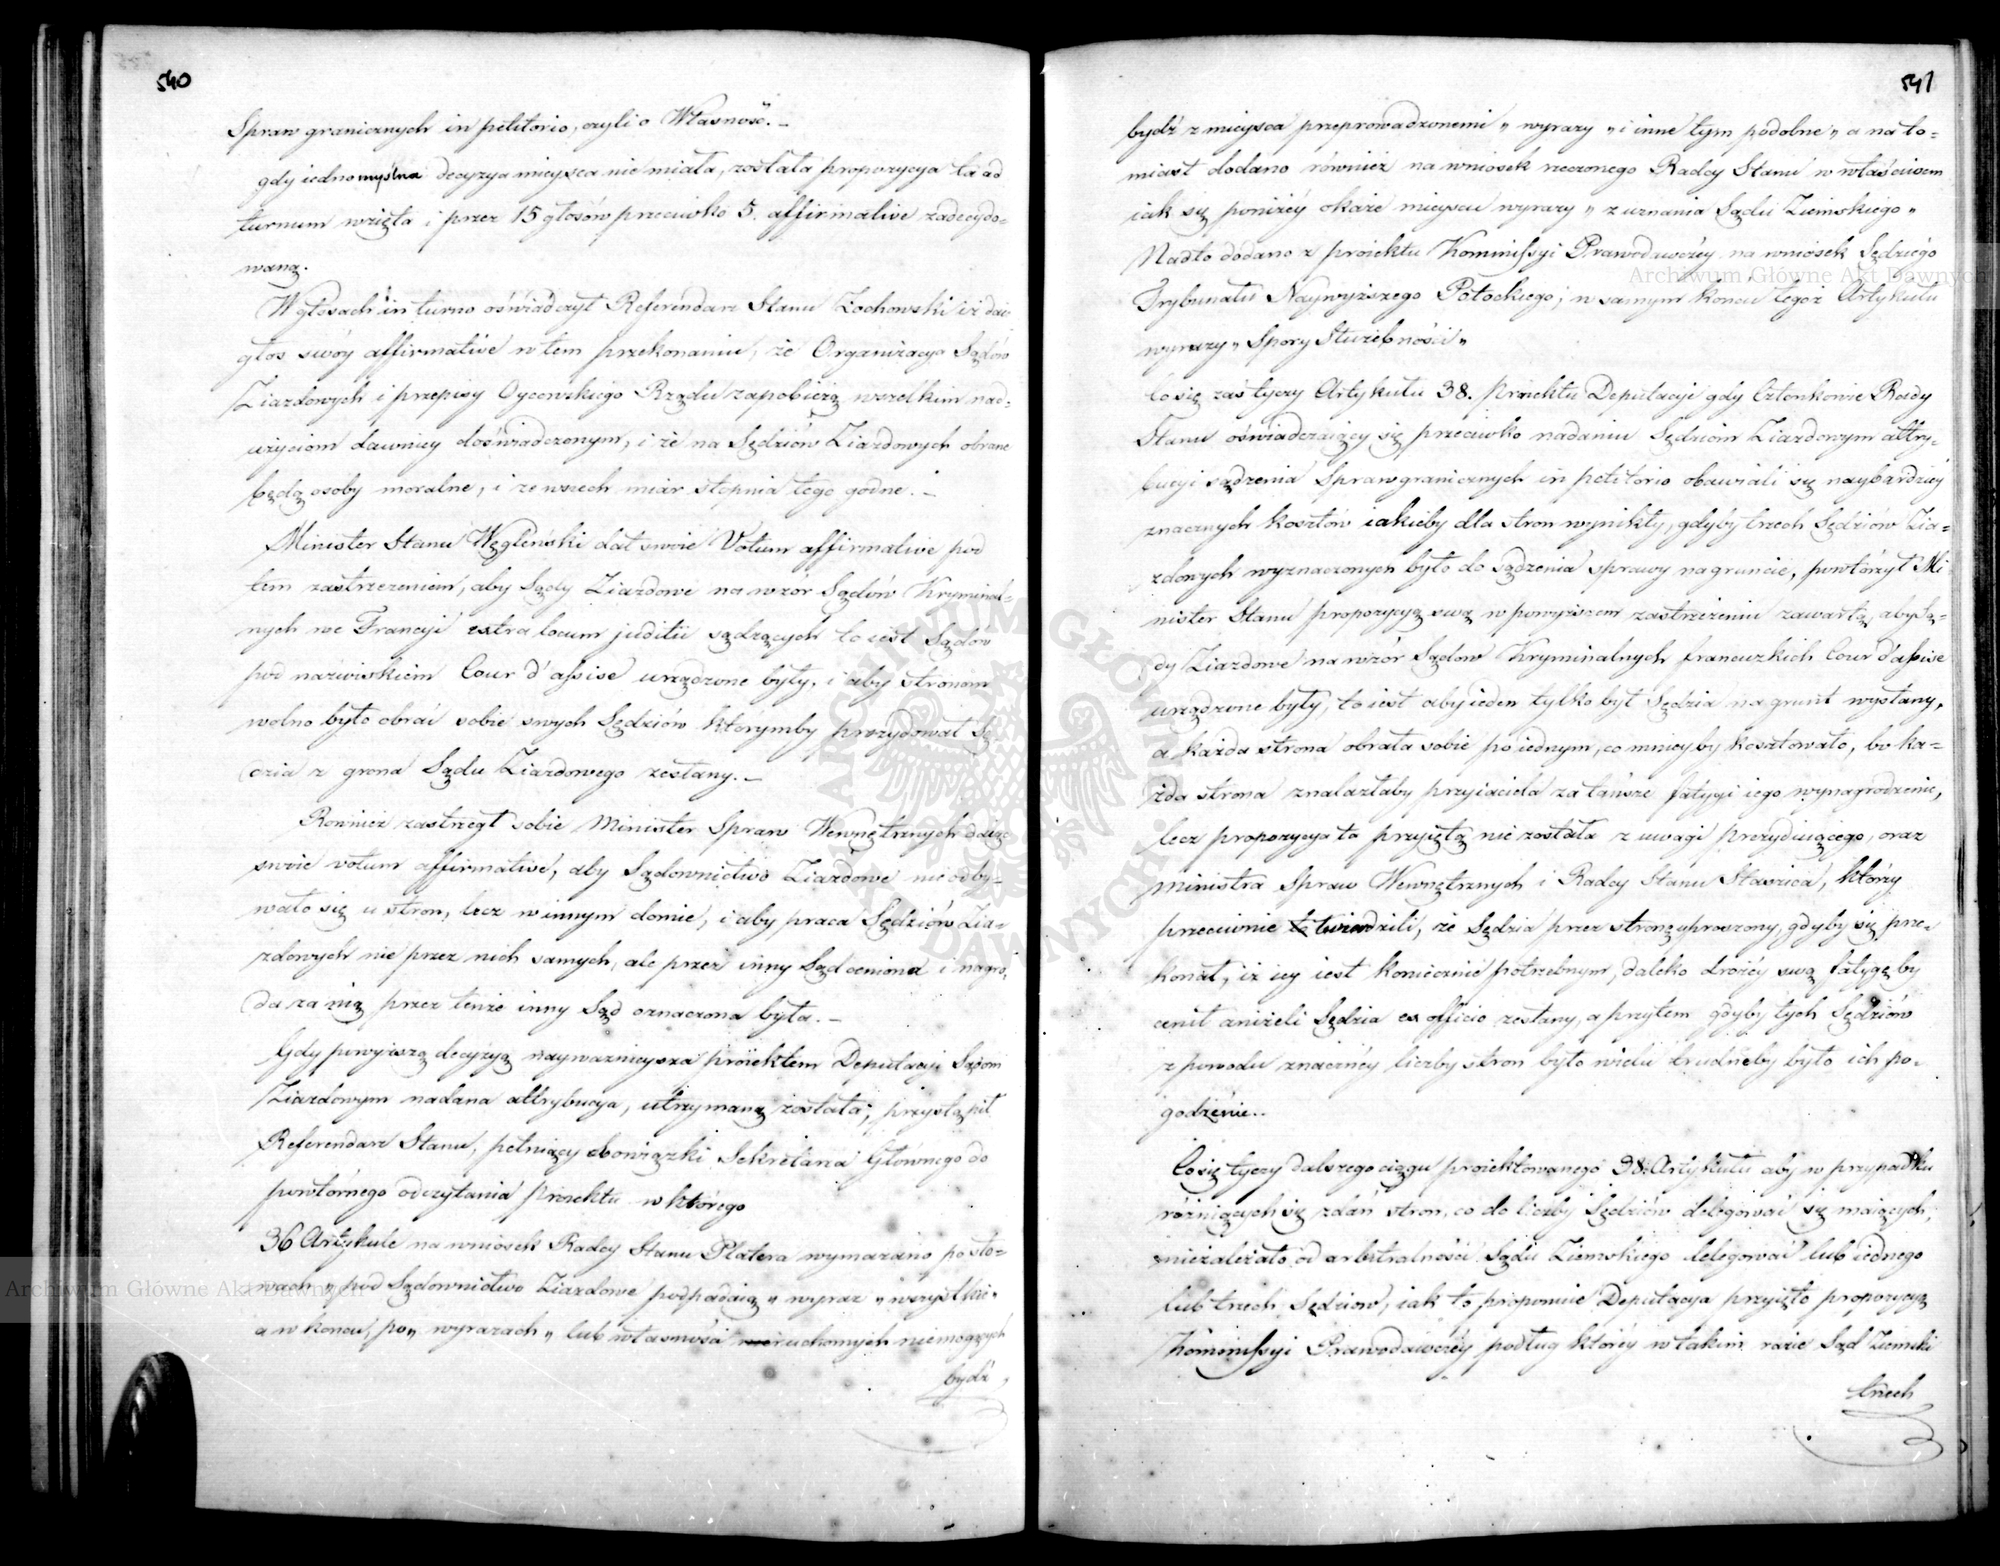 540
Spraw granicznych in petitorio, czyli o Własność. —
gdy iednomyślna decyzya mieysca nie miała, została propozycya ta ad
turnum wzięta i przez 15 głosów przeciwko 5. affirmative zadecydo-
waną.
W głosach in turno oświadczył Referendarz Stanu Zochowski iż daie
głos swóy affirmative w tem przekonaniu, że Organizacya Sądów
Ziazdowych i przepisy Oycowskiego Rządu zapobieżą wszelkim nad-
użyciom dawniey doświadczonym, i że na Sędziów Ziazdowych obrane
będą osoby moralne, i ze wszech miar stopnia tego godne. —
Minister Stanu Węgleński dał swoie Votum affirmative pod
tem zastrzeżeniem, aby Sądy Ziazdowe na wzór Sądów Kryminal-
nych we Francyi extra locum juditii sądzących to iest Sądów
pod nazwiskiem Cour d'assise urządzone były, i aby stronom
wolno było obrać sobie swych Sędziów którymby prezydował Sę-
dzia z grona Sądu Ziazdowego zesłany. —
Również zastrzegł sobie Minister Spraw Wewnętrznych daiąc
swoie votum affirmative, aby Sądownictwo Ziazdowe nie odby-
wało się u stron, lecz w innym domie, i aby praca Sędziów Zia-
zdowych nie przez nich samych, ale przez inny Sąd ceniona i nagro-
da za nią przez tenże inny Sąd oznaczona była. —
Gdy powyższą decyzyą nayważnieysza proiektem Deputacyi Sądom
Ziazdowym nadana attrybucya, utrzymaną została; przystąpił
Referendarz Stanu, pełniący obowiązki Sekretarza Głównego do
powtórnego odczytania Proiektu w którego
36 Artykule na wniosek Radcy Stanu Platera wymazano po sło-
wach „ pod Sądownictwo Ziazdowe podpadaią „ wyraz „ wszystkie „
a w końcu, po „ wyrazach „ lub własności nieruchomych niemogących
bydź
541
bydź z mieysca przeprowadzonemi „ wyrazy „ i inne tym podobne „ a nato-
miast dodano również na wniosek rzeczonego Radcy Stanu w właściwem
iak się poniżéy okaże mieyscu wyrazy „ z uznania Sądu Ziemskiego „
Nadto dodano z proiektu Kommissyi Prawodawczéy na wniosek Sędziego
Trybunału Naywyższego Potockiego; w samym końcu tegoż Artykułu
wyrazy „ Spory Służebności „
Co się zaś tyczy Artykułu 38. Proiektu Deputacyi gdy Członkowie Rady
Stanu oświadczaiący się przeciwko nadaniu Sędziom Ziazdowym attry-
bucyi sądzenia Spraw granicznych in petitorio obawiali się naybardziey
znacznych kosztów iakieby dla stron wynikły, gdyby trzech Sędziów Zia-
zdowych wyznaczonych było do sądzenia sprawy na gruncie, powtórzył Mi-
nister Stanu propozycyą swą w powyższem zastrzeżeniu zawartą, aby Są-
dy Ziazdowe na wzór Sądów Kryminalnych francuzkich Cour d'assise
urządzone były, to iest aby ieden tylko był Sędzia na grunt wysłany,
a każda strona obrała sobie po iednym, co mniey by kosztowało, bo ka-
żda strona znalazłaby przyiaciela za tańsze fatygi iego wynagrodzenie,
lecz propozycya ta przyiętą nie została z uwagi prezyduiącego, oraz
Ministra Spraw Wewnętrznych i Radcy Stanu Staszica, którzy
przeciwnie twierdzili, że Sędzia przez stronę uproszony, gdyby się prze-
konał, iż iey iest koniecznie potrzebnym, daleko drożéy swą fatygę by
cenił aniżeli Sędzia ex officio zesłany, a przytem gdyby tych Sędziów
z powodu znacznéy liczby stron było wielu trudneby było ich po-
godzenie..
Co się tyczy dalszego ciągu proiektowanego 38. Artykułu aby w przypadku
różniących się zdań stron, co do liczby Sędziów delegować się maiących,
niezależało od arbitralności Sądu Ziemskiego delegować lub iednego
lub trzech Sędziów, iak to proponuie Deputacya przyięto propozycyą
Kommissyi Prawodawczéy podług któréy w takim razie Sąd Ziemski
trzech